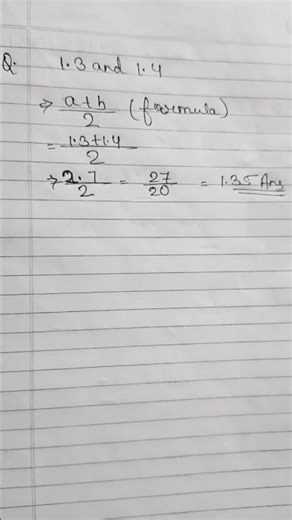 Q. 1.3 and 1.4
⇒ a+b/2 (formula)
= 1.3+1.4/2
⇒ 2.7/2 = 27/20 = 1.35 Ans